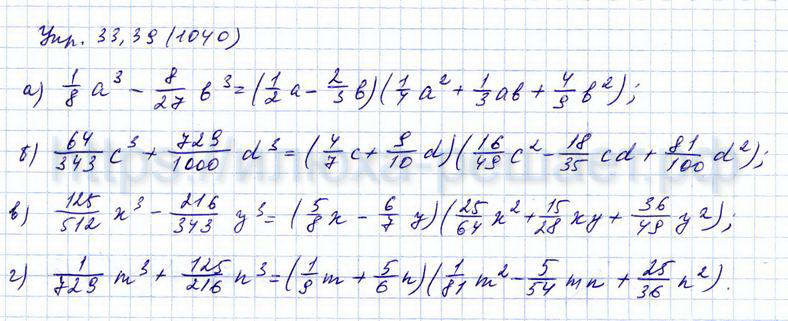 Упр. 33,39 (1040)
а) 1/8 a³ - 8/27 b³ = (1/2 a - 2/3 b)(1/4 a² + 1/3 ab + 4/9 b²);
б) 64/343 c³ + 729/1000 d³ = (4/7 c + 9/10 d)(16/49 c² - 18/35 cd + 81/100 d²);
в) 125/512 x³ - 216/343 y³ = (5/8 x - 6/7 y)(25/64 x² + 15/28 xy + 36/49 y²);
г) 1/729 m³ + 125/216 n³ = (1/9 m + 5/6 n)(1/81 m² - 5/54 mn + 25/36 n²).